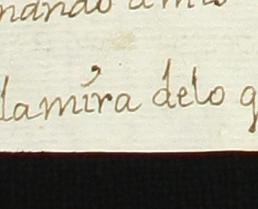 nando amio
lamíra delo q